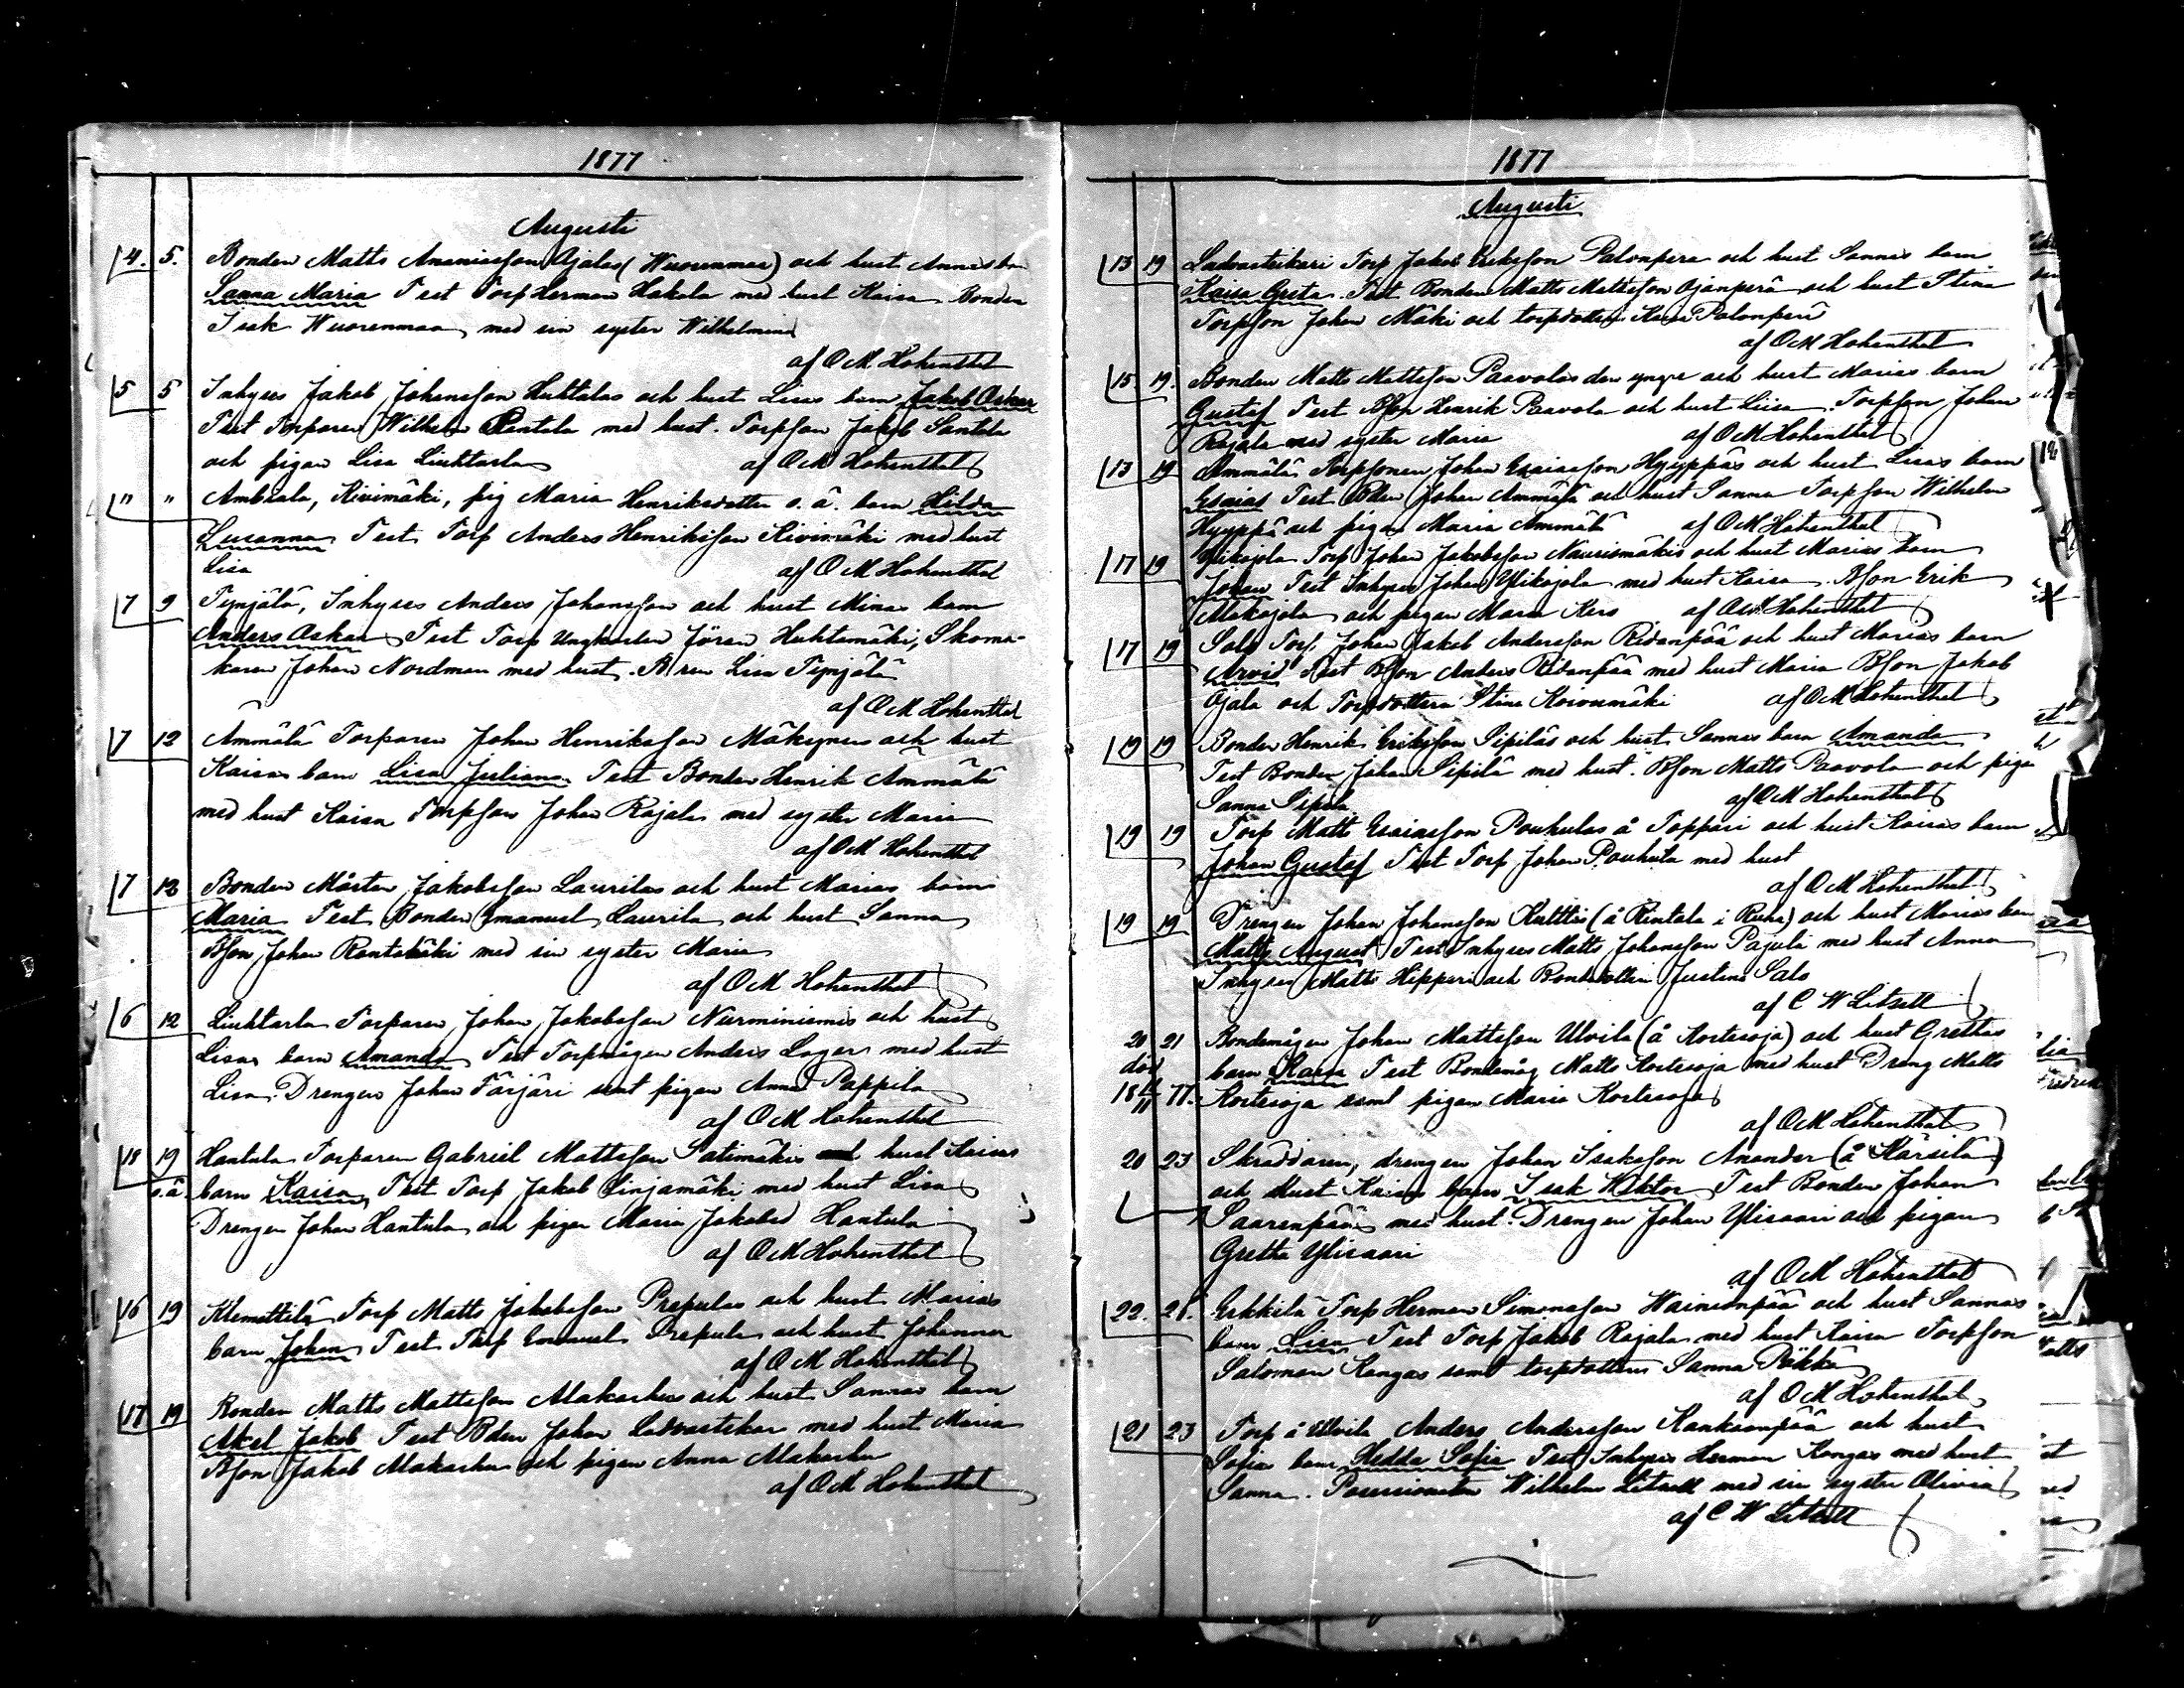 1877
Augusti
4. 5. Bonden Matts Ananiasson Ojalas (Wuorenmaa) och hust Annas barn
Sanna Maria Test Torp Herman Hakola med hust Kaisa Bonden
Isak Wuorenmaa med sin syster Wilhelmina
af O M Hohenthal
5 5 Inhyses Jakob Johansson Huhtalas och hust Lisas barn Jakob Oskar
Test Torparen Wilhelm Rentola med hust. Torpson Jakob Santala
och pigan Lisa Liuhtarla af O M Hohenthal
" " Ambrala, Kivimäki, pig Maria Henriksdotter o. ä. barn Hilda
Susanna Test Torp Anders Henriksson Kivimäki med hust
Lisa af O M Hohenthal
7 9 Tynjälä, Inhyses Anders Johansson och hust Minas barn
Anders Oskar Test Torp Ungkarlen Jöran Huhtamäki, Skoma-
karen Johan Nordman med hust. Lisa Tynjälä
af O M Hohenthal
7 12 Ammälä Torparen Johan Henriksson Mäkynens och hust
Kaisas barn Lisa Juliana Test Bonden Henrik Ammälä
med hust Kaisa Torpson Johan Rajala med syster Maria
af O M Hohenthal
7 12 Bonden Mårten Jakobsson Laurilas och hust Marias barn
Maria Test Bonden Emanuel Laurila och hust Sanna
Bson Johan Rantamäki med sin syster Maria
af O M Hohenthal
6 12 Liuhtarla Torparen Johan Jakobsson Nurminiemis och hust
Lisas barn Amanda Test Torpmågen Anders Lager med hust
Lisa. Drengen Johan Färjäri samt pigan Anna Pappila
af O M Hohenthal
18 19 Hantula Torparen Gabriel Mattsson Satimäkis hust Kaisas
s.ä. barn Kaisa Test Torp Jakob Linjamäki med hust Lisa
Drengen Johan Hantula och pigan Maria Jakobsd Hantula
af O M Hohenthal
16 19 Klemettilä Torp Matts Jakobsson Prepulas och hust Marias
barn Johan Test Torp Emanuel Prepula och hust Johanna
af O M Hohenthal
17 19 Bonden Matts Mattsson Alakarhus och hust Sannas barn
Axel Jakob Test Bden Johan Ladvastikar med hust Maria
Bson Jakob Alakarhu och pigan Anna Alakarhu
af O M Hohenthal
1877
Augusti
13 19 Ladvasteikari Torp Jakob Eriksson Palonpera och hust Sannas barn
Kaisa Greta. Test Bonden Matts Mattsson Ojanperä och hust Stina
Torpson Johan Mäki och torpdottern Kaisa Palonperä
af O M Hohenthal
15. 19. Bonden Matts Mattsson Paavolas den yngre och hust Marias barn
Gustaf Test Bson Henrik Paavola och hust Liisa. Torpson Johan
Rajala med syster Maria af O M Hohenthal
13 19 Ammälä Torpsonen Johan Esaiasson Hyyppäs och hust Lisas barn
Esaias Test Bden Johan Ammälä och hust Sanna Torpson Wilhelm
Hyyppä och pigan Maria Ammälä af O M Hohenthal
17 19 Ylikojola Torp Johan Jakobsson Naurismäkis och hust Marias barn
Johan Test Inhyses Johan Ylikojola med hust Kaisa. Bson Erik
Alakojola och pigan Maria Kero af O M Hohenthal
17 19 Salo Torp Johan Jakob Andersson Ridanpää och hust Marias barn
Arvid Test Bson Anders Ridanpää med hust Maria Bson Jakob
Ojala och Torpdottern Stina Koivumäki af O M Hohenthal
19 19 Bonden Henrik Eriksson Sipiläs och hust Sannas barn Amanda
Test Bonden Johan Sipilä med hust. Bson Matts Paavola och piga
Sanna Sipilä af O M Hohenthal
19 19 Torp Matts Esaiasson Pouhulas å Toppari och hust Kaisas barn
Johan Gustaf Test Torp Johan Pouhula med hust
af O M Hohenthal
19 19 Drengen Johan Johansson Kulttis (å Rintala i Ruha) och hust Marias barn
Matts August Test Inhyses Matts Johansson Pajula med hust Anna
Inhyses Matts Hipperi och Bondedottern Justina Salo
af C W Litzell
20 21 Bondemågen Johan Mattsson Ulvila (å Kortesoja) och hust Grethas
död barn Maria Test Bondemåg Matts Kortesoja med hust Dreng Matts
18 11 77. Kortesoja samt pigan Maria Kortesoja
af O M Hohenthal
20 23 Skräddaren, drengen Johan Isaksson Anander (å Kärsilä)
och Hust Kaisas barn Isak Wiktor Test Bonden Johan
Saarenpää med hust. Drengen Johan Ylisaari och pigan
Gretha Ylisaari
af O M Hohenthal
22. 26. Erkkilä Torp Herman Simonsson Wainionpää och hust Sannas
barn Lisa Test Torp Jakob Rajala med hust Kaisa Torpson
Salomon Kangas samt torpdottern Sanna Päkkä
af O M Hohenthal
21 23 Torp å Ulvila Anders Andersson Kankaanpää och hust
Sofias barn Hedda Sofia Test Inhyses Herman Kangas med hust
Sanna. Possessionaten Wilhelm Litzell med sin syster Olivia
af C W Litzell